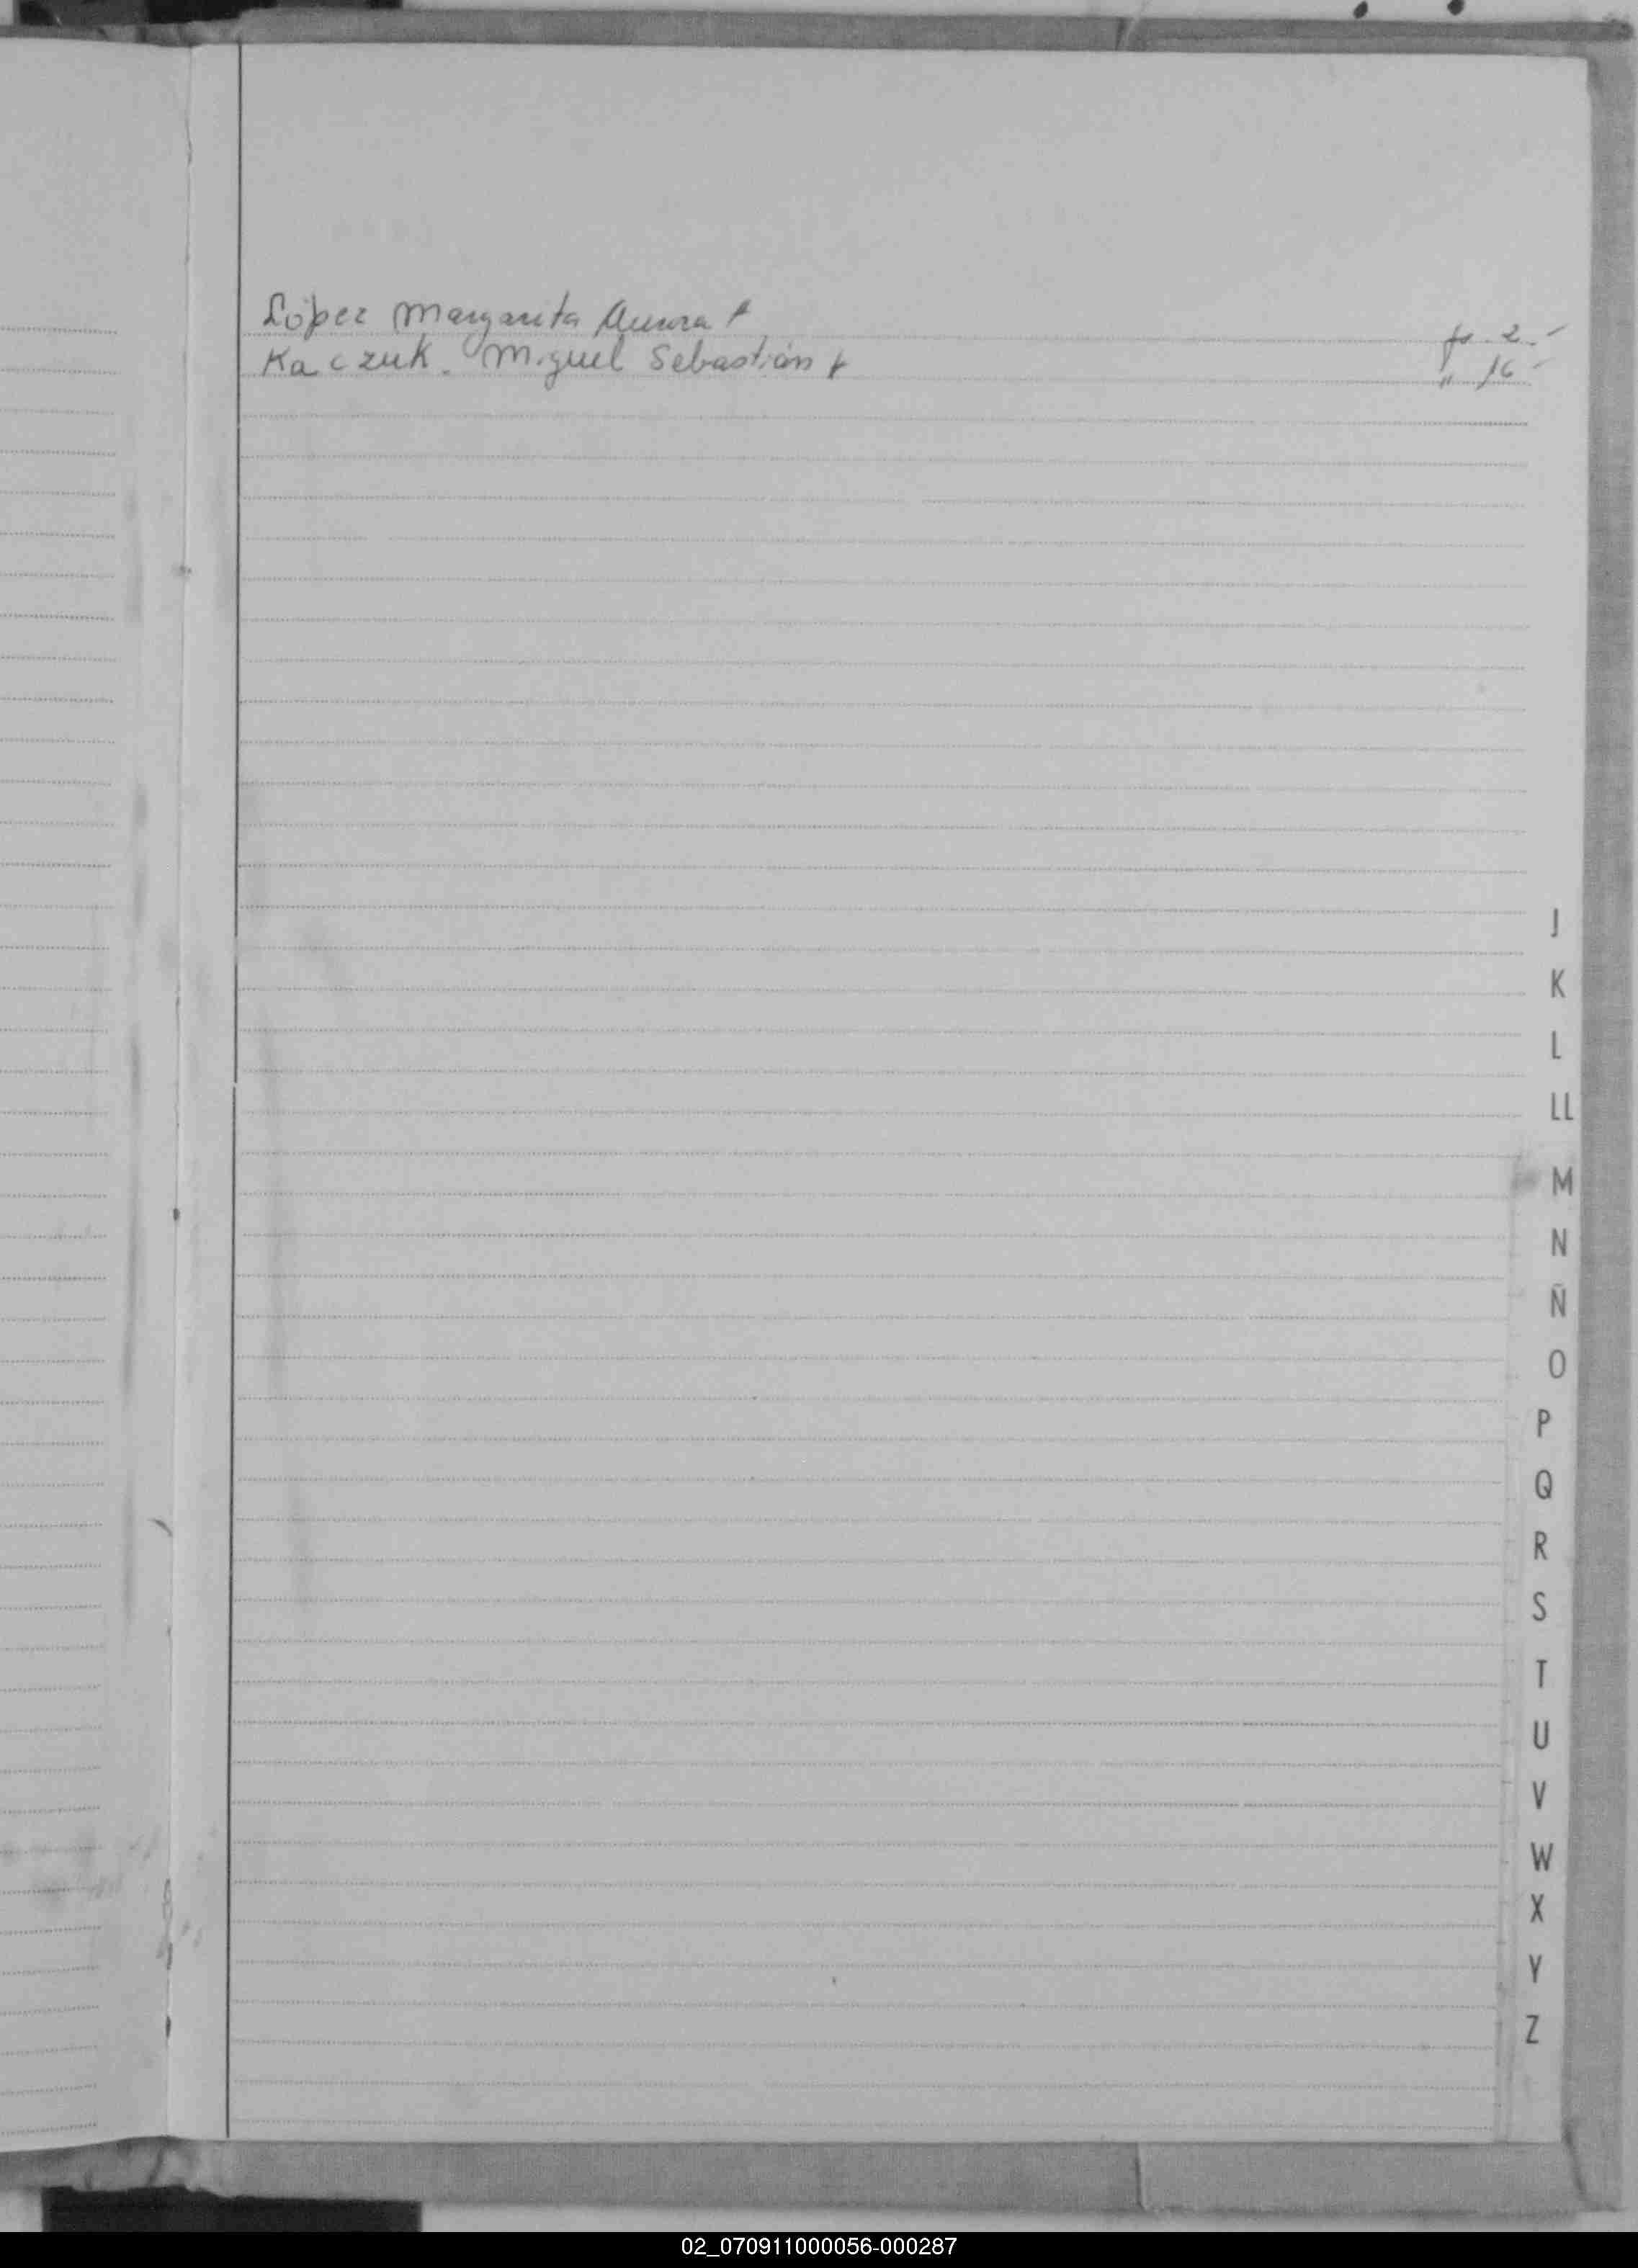 López Margarita Aurora fs. 2.-
Kaczuk. Miguel Sebastián " 16-
J
K
L
LL
M
N
Ñ
O
P
Q
R
S
T
U
V
W
X
Y
Z
02_070911000056-000287